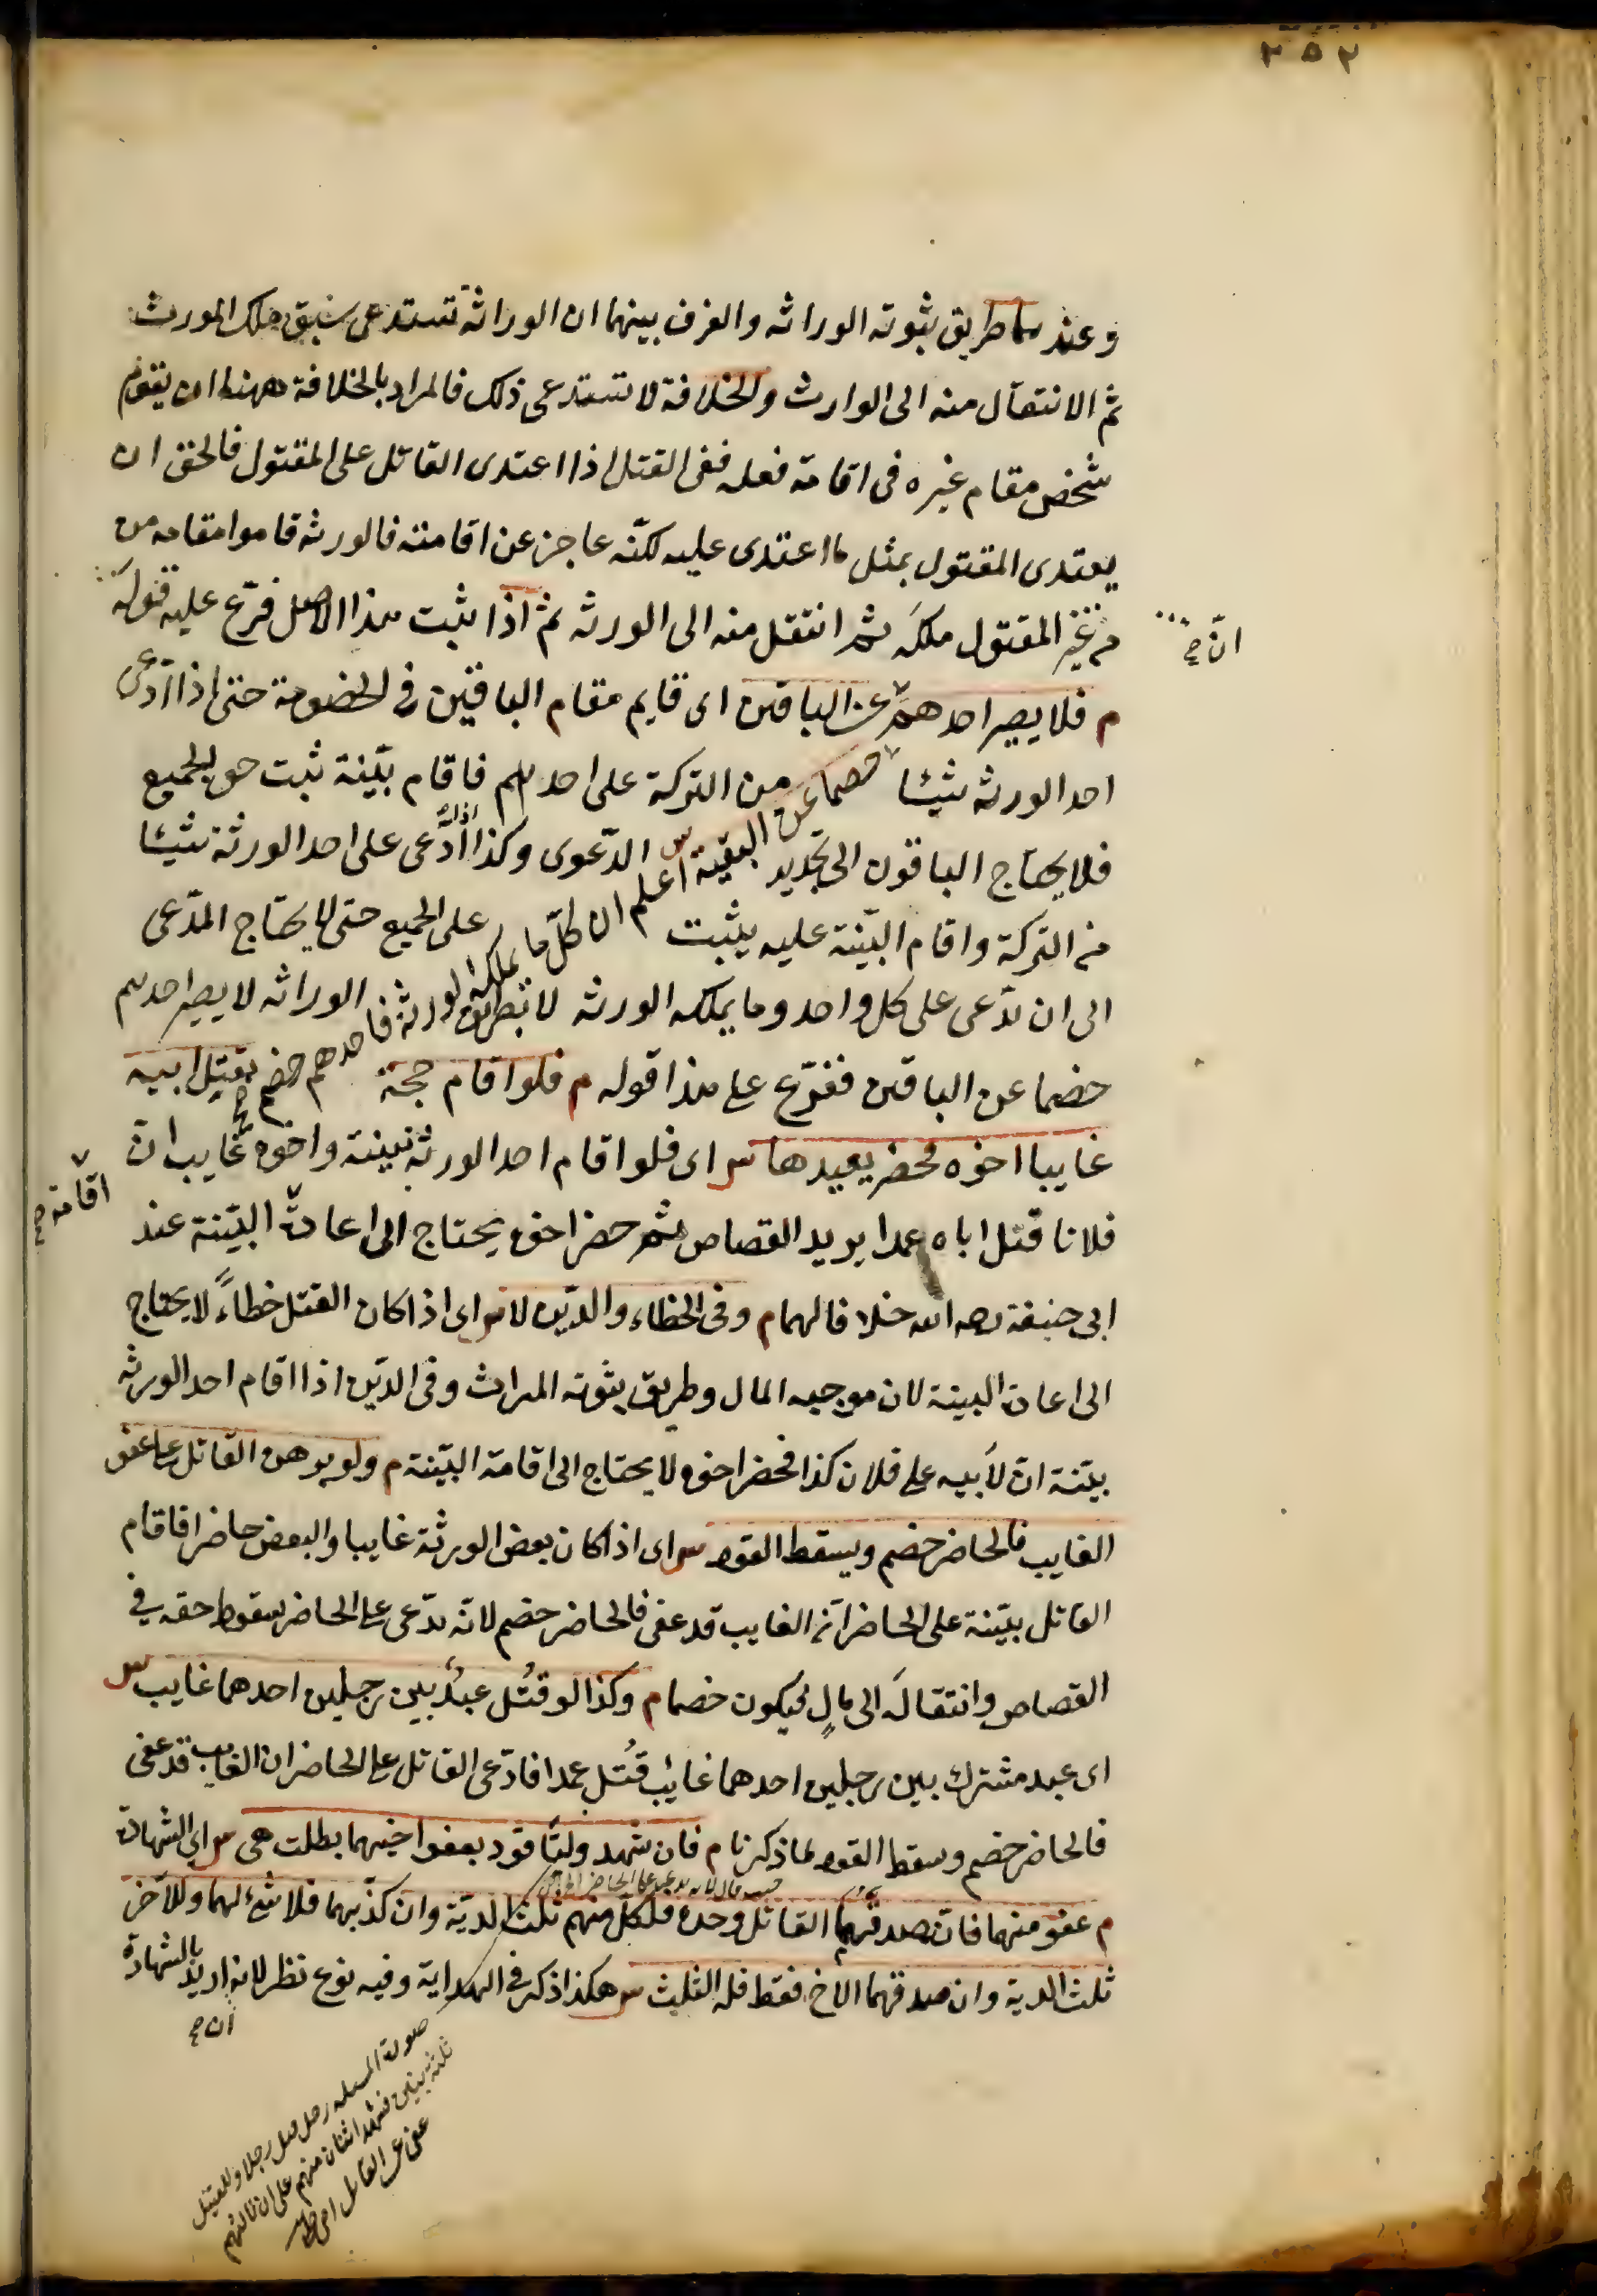 ٢٥٢
وعندهما طريق ثبوته الوراثه والفرق بينهما ان الوراثة تستدعى سبق ملك المورث
ثم الانتقال منه الى الوارث والخلافة لا تستدعى ذلك فالمراد بالخلافة ههنا ان يقوم
شخص مقام غيره فى اقامة فعله ففى القتل اذا اعتدى القاتل على المقتول فالحق ان
يعتدى المقتول بمثل ما اعتدى عليه لكنّه عاجز عن اقامته فالورثه قاموا مقامه من
غير المقتول ملكَه ثم انتقل منه الى الورثه ثم اذا ثبت هذا الاصل فرّع عليه قوله
انّ صح
م فلا يصير احدهم عن الباقين اى قايم مقام الباقين فى الخصومة حتى اذا ادّعى
احد الورثه شيئا من التركة على احدهم فاقام بيّنة ثبت حق الجميع
خصما عن البقية س اعلم ان كلّ ما يملكه الورثة فاحدهم خصم
فلا يحتاج الباقون الى تجديد الدّعوى وكذا اذا ادّعى على احد الورثة شيئا
من التركة واقام البيّنة عليه يثبت على الجميع حتى لا يحتاج المدّعى
الى ان يدّعى على كل واحد وما يملكه الورثه لا بطريق الوراثه لا يصير احدهم
خصما عن الباقين ففرّع على هذا قوله م فلو اقام حجة بقتل ابيه
غايبا اخوه فحضر يعيدها س اى فلو اقام احد الورثة بيّنة واخوه غايب انّ
فلانا قتل اباه عمدا يريد القصاص ثم حضر اخوه يحتاج الى اعادة البيّنة عند
اقامة صح
ابى حنيفة رحمه الله خلافا لهما م وفى الخطاء والدّين لا س اى اذا كان القتل خطاءً لا يحتاج
الى اعادة البينة لان موجبه المال وطريق ثبوته الميراث وفى الدّين اذا اقام احد الورثه
بيّنة انّ لأبيه على فلان كذا فحضر اخوه لا يحتاج الى اقامة البيّنة م ولو برهن القاتل على عفو
الغايب فالحاضر خصم ويسقط القود س اى اذا كان بعض الورثة غايبا والبعض حاضرا فاقام
القاتل بيّنة على الحاضر انّ الغايب قد عفى فالحاضر خصم لانّه يدّعى على الحاضر سقوط حقه فى
القصاص وانتقالَه الى مالٍ فيكون خصما م وكذا لو قُتل عبدٌ بين رجلين احدهما غايب س
اى عبد مشترك بين رجلين احدهما غائب قُتل عمدا فادّعى القاتل على الحاضر ان الغايب قد عفى
فالحاضر خصم وسقط القود لما ذكرنا م فان شهد وليّا قود بعفو اخيهما بطلت هى س اى الشهادة
م عفو منهما فان صدقهما القاتل وحده فلكل منهم ثلث الدية وان كذّبهما فلا شئ لهما وللآخر
ثلث الدية وان صدقهما الاخ فقط فله الثلث س هكذا ذكر فى الهداية وفيه نوع نظر لانه اريد بالشهادة
ان صح
صورة المسله رجل قتل رجلا وللقتيل
ثلثة بنين فشهد اثنان منهم على ان ثالثهم
عفى عن القاتل